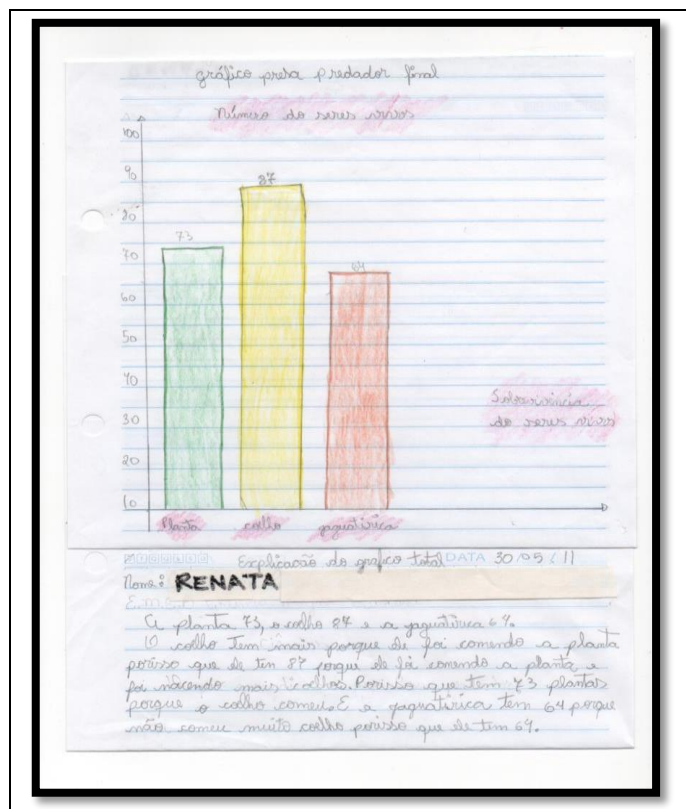 gráfico presa predador final
Número do seres vivos
100
90
87
80
73
70
64
60
50
40
30
20
10
Sobrevivência
do seres vivos
Planta coelho jaguatirica
Explicação do grafico total DATA 30/05/11
Nome: RENATA
A planta 73, o coelho 87 e a jaguatirica 64.
O coelho Tem mais porque ele foi comendo a planta
porisso que ele tem 87 porqui ele foi comendo a planta e
foi nacendo mais coelhos. Porisso que tem 73 plantas
porque o coelho comeu. E a jaguatirica tem 64 porque
não comeu muito coelho porisso que ele tem 64.